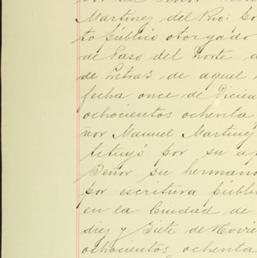 Martinez del Rio: Co
to público otorgado
de Paso del Norte a
de Letras de aquel
fecha once de Dicie
ochocientos ochenta
nor Manuel Martinez
tituyó por su a
Señor su hermano
por escritura públi
en la Ciudad de
diez y siete de Novie
ochocientos ochenta